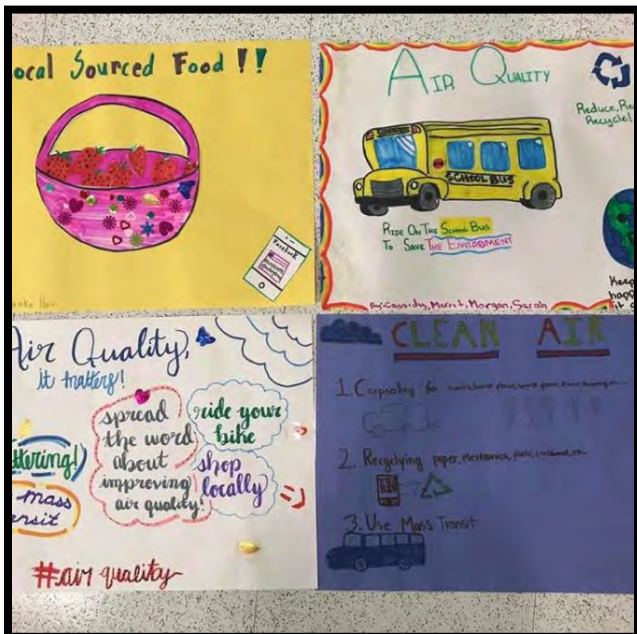 ocal Sourced Food !!
Facebook
AIR QUALITY
Reduce, Re
Recycle!
SCHOOL BUS
RIDE ON THE SCHOOL BUS
TO SAVE THE ENVIORMENT
Keep
happ
By: Cassidy, Merrit, Morgan, Sarah
Air Quality,
it matters!
spread
the word
about
improving
air quality!
ride your
bike
shop
locally
ttering!
mass
ansit
#air quality
CLEAN AIR
1. Carpooling for
2. Recycling paper, electronics,
3. Use Mass Transit